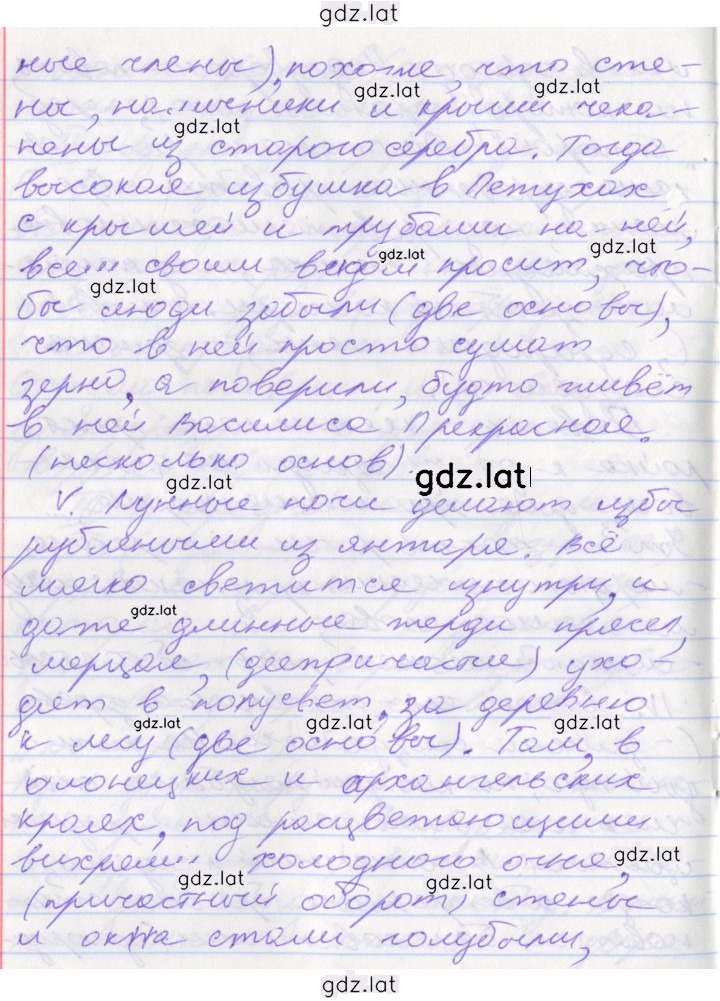 gdz.lat
ные члены), похоже, что сте-
gdz.lat gdz.lat
ны, наличники и крыши чека-
gdz.lat
нены из старого серебра. Тогда
высокая избушка в Петухах
с крышей и трубами на ней,
gdz.lat gdz.lat
всем своим видом просит, что-
gdz.lat
бы люди забыли (две основы),
что в ней просто сушат
зерно, а поверили, будто живёт
в ней Василиса Прекрасная.
(несколько основ).
gdz.lat gdz.lat
V. Лунные ночи делают избы
рублеными из янтаря. Всё
мягко светится изнутри, и
gdz.lat
даже длинные жерди прясел,
мерцая, (деепричастие) ухо-
дят в полусвет, за деревню
gdz.lat gdz.lat gdz.lat
к лесу (две основы). Там, в
олонецких и архангельских
краях, под расцветающими
вихрями холодного огня,
gdz.lat gdz.lat gdz.lat
(причастный оборот) стены
и окна стали голубыми,
gdz.lat